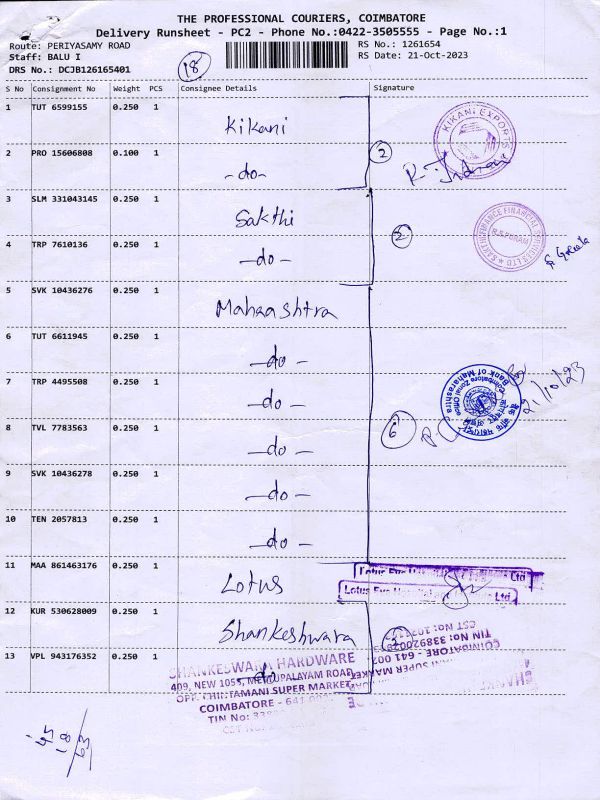 THE PROFESSIONAL COURIERS, COIMBATORE
Delivery Runsheet - PC2 - Phone No.:0422-3505555 - Page No.:1
Route: PERIYASAMY ROAD
RS No.: 1261654
Staff: BALU I
RS Date: 21-Oct-2023
DRS No.: DCJB126165401
18
S No Consignment No Weight PCS Consignee Details Signature
1 TUT 6599155 0.250 1 Kikani
KIKANI EXPORTS
2 PRO 15606808 0.100 1 -do-
2
3 SLM 331043145 0.250 1 Sakthi
SAKTHIFINANCE FINANCIAL SERVICES LTD
R.S.PURAM
4 TRP 7610136 0.250 1 -do-
2
5 SVK 10436276 0.250 1 Maharashtra
6 TUT 6611945 0.250 1 -do-
7 TRP 4495508 0.250 1 -do-
Bank of Maharashtra
Coimbatore Zonal Office
21/10/23
8 TVL 7783563 0.250 1 -do-
6
9 SVK 10436278 0.250 1 -do-
10 TEN 2057813 0.250 1 -do-
11 MAA 861463176 0.250 1 Lotus
Lotus Eye Hospital
Ltd
Lotus Eye Hospital
Ltd
12 KUR 530628009 0.250 1 Shankeshwara
13 VPL 943176352 0.250 1 do
SHANKESWARA HARDWARE
409, NEW 1055, METTUPALAYAM ROAD,
OPP. CHINTAMANI SUPER MARKET,
COIMBATORE - 641 002
TIN No: 338
COIMBATORE - 641 002